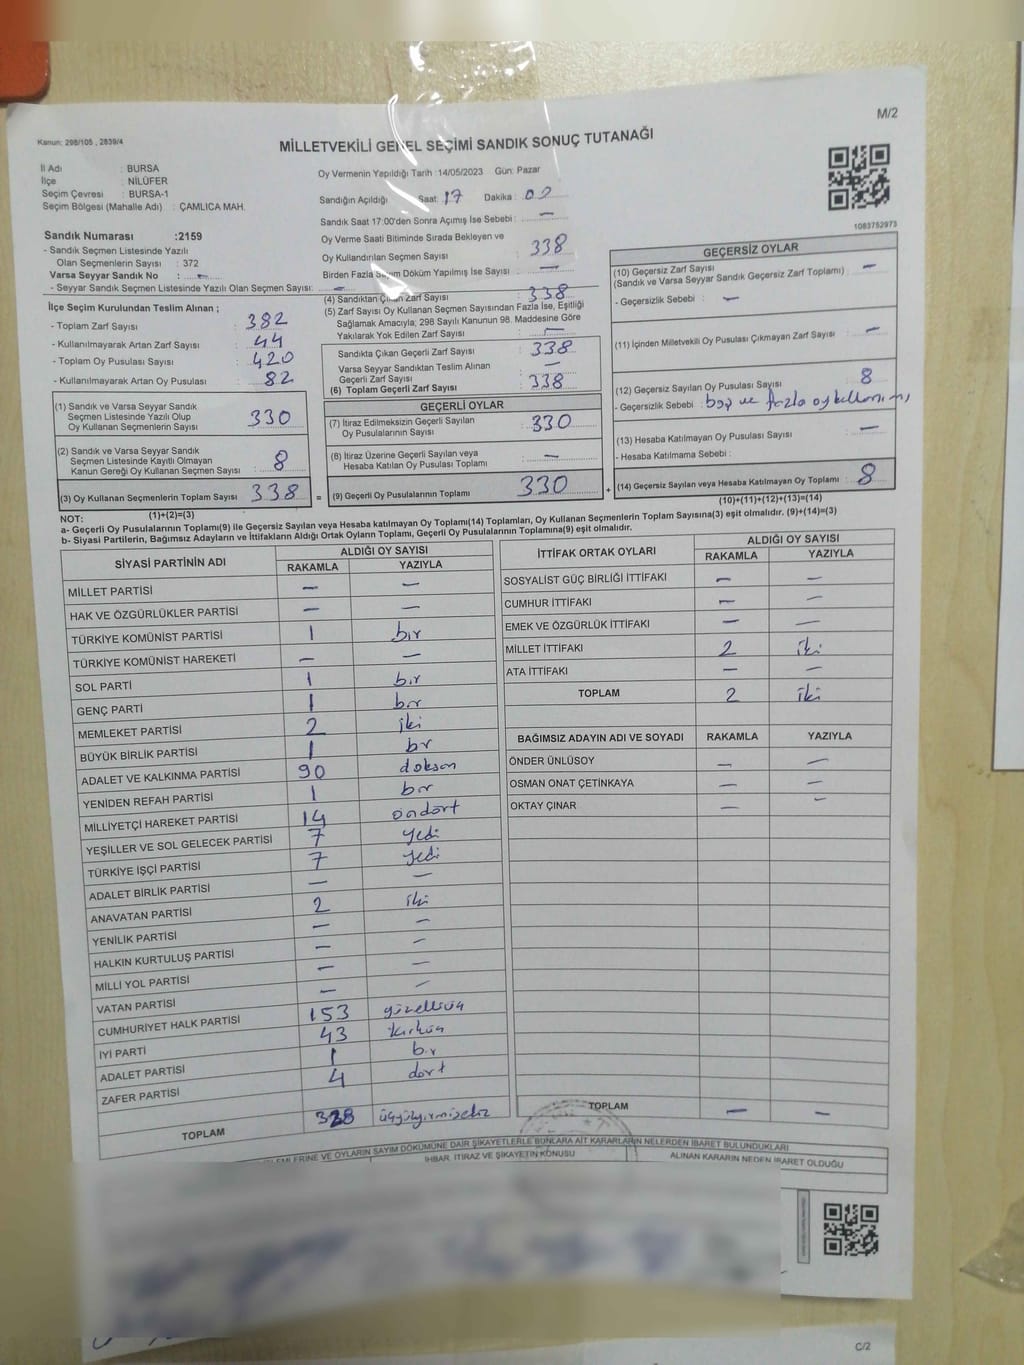 M/2
Kanun: 298/105 , 2839/4
MİLLETVEKİLİ GENEL SEÇİMİ SANDIK SONUÇ TUTANAĞI
İl Adı : BURSA
İlçe : NİLÜFER
Seçim Çevresi : BURSA-1
Seçim Bölgesi (Mahalle Adı) : ÇAMLICA MAH.
Sandık Numarası :2159
- Sandık Seçmen Listesinde Yazılı
Olan Seçmenlerin Sayısı : 372
Varsa Seyyar Sandık No : –
- Seyyar Sandık Seçmen Listesinde Yazılı Olan Seçmen Sayısı: –
Oy Vermenin Yapıldığı Tarih :14/05/2023 Gün: Pazar
Sandığın Açıldığı Saat: 17 Dakika :
Sandık Saat 17:00'den Sonra Açımış İse Sebebi : –
Oy Verme Saati Bitiminde Sırada Bekleyen ve
Oy Kullandırılan Seçmen Sayısı : 338
Birden Fazla Seçim Döküm Yapılmış İse Sayısı : –
1083752973
İlçe Seçim Kurulundan Teslim Alınan ;
- Toplam Zarf Sayısı : 382
- Kullanılmayarak Artan Zarf Sayısı : 44
- Toplam Oy Pusulası Sayısı : 420
- Kullanılmayarak Artan Oy Pusulası : 82
(1) Sandık ve Varsa Seyyar Sandık
Seçmen Listesinde Yazılı Olup
Oy Kullanan Seçmenlerin Sayısı : 330
(2) Sandık ve Varsa Seyyar Sandık
Seçmen Listesinde Kayıtlı Olmayan
Kanun Gereği Oy Kullanan Seçmen Sayısı : 8
(3) Oy Kullanan Seçmenlerin Toplam Sayısı : 338 =
(1)+(2)=(3)
(4) Sandıktan Çıkan Zarf Sayısı : 338
(5) Zarf Sayısı Oy Kullanan Seçmen Sayısından Fazla İse, Eşitliği
Sağlamak Amacıyla, 298 Sayılı Kanunun 98. Maddesine Göre
Yakılarak Yok Edilen Zarf Sayısı : –
Sandıkta Çıkan Geçerli Zarf Sayısı : 338
Varsa Seyyar Sandıktan Teslim Alınan
Geçerli Zarf Sayısı : –
(6) Toplam Geçerli Zarf Sayısı : 338
GEÇERLİ OYLAR
(7) İtiraz Edilmeksizin Geçerli Sayılan
Oy Pusulalarının Sayısı : 330
(8) İtiraz Üzerine Geçerli Sayılan veya
Hesaba Katılan Oy Pusulası Toplamı : –
(9) Geçerli Oy Pusulalarının Toplamı : 330 +
GEÇERSİZ OYLAR
(10) Geçersiz Zarf Sayısı : –
(Sandık ve Varsa Seyyar Sandık Geçersiz Zarf Toplamı)
- Geçersizlik Sebebi : –
(11) İçinden Milletvekili Oy Pusulası Çıkmayan Zarf Sayısı : –
(12) Geçersiz Sayılan Oy Pusulası Sayısı : 8
- Geçersizlik Sebebi : boş ve fazla oy kullanımı
(13) Hesaba Katılmayan Oy Pusulası Sayısı : –
- Hesaba Katılmama Sebebi :
(14) Geçersiz Sayılan veya Hesaba Katılmayan Oy Toplamı : 8
(10)+(11)+(12)+(13)=(14)
NOT:
a- Geçerli Oy Pusulalarının Toplamı(9) ile Geçersiz Sayılan veya Hesaba katılmayan Oy Toplamı(14) Toplamları, Oy Kullanan Seçmenlerin Toplam Sayısına(3) eşit olmalıdır. (9)+(14)=(3)
b- Siyasi Partilerin, Bağımsız Adayların ve İttifakların Aldığı Ortak Oyların Toplamı, Geçerli Oy Pusulalarının Toplamına(9) eşit olmalıdır.
SİYASİ PARTİNİN ADI ALDIĞI OY SAYISI
RAKAMLA YAZIYLA
MİLLET PARTİSİ – –
HAK VE ÖZGÜRLÜKLER PARTİSİ – –
TÜRKİYE KOMÜNİST PARTİSİ 1 bir
TÜRKİYE KOMÜNİST HAREKETİ – –
SOL PARTİ 1 bir
GENÇ PARTİ 1 bir
MEMLEKET PARTİSİ 2 iki
BÜYÜK BİRLİK PARTİSİ 1 br
ADALET VE KALKINMA PARTİSİ 90 doksan
YENİDEN REFAH PARTİSİ 1 bir
MİLLİYETÇİ HAREKET PARTİSİ 14 ondört
YEŞİLLER VE SOL GELECEK PARTİSİ 7 yedi
TÜRKİYE İŞÇİ PARTİSİ 7 yedi
ADALET BİRLİK PARTİSİ – –
ANAVATAN PARTİSİ 2 iki
YENİLİK PARTİSİ – –
HALKIN KURTULUŞ PARTİSİ – –
MİLLİ YOL PARTİSİ – –
VATAN PARTİSİ – –
CUMHURİYET HALK PARTİSİ 153 yüzelliüç
İYİ PARTİ 43 kırküç
ADALET PARTİSİ 1 bir
ZAFER PARTİSİ 4 dört
TOPLAM 328 üçyüzyirmisekiz
İTTİFAK ORTAK OYLARI ALDIĞI OY SAYISI
RAKAMLA YAZIYLA
SOSYALİST GÜÇ BİRLİĞİ İTTİFAKI – –
CUMHUR İTTİFAKI – –
EMEK VE ÖZGÜRLÜK İTTİFAKI – –
MİLLET İTTİFAKI 2 iki
ATA İTTİFAKI – –
TOPLAM 2 iki
BAĞIMSIZ ADAYIN ADI VE SOYADI RAKAMLA YAZIYLA
ÖNDER ÜNLÜSOY – –
OSMAN ONAT ÇETİNKAYA – –
OKTAY ÇINAR – –
TOPLAM – –
İŞLEMLERİNE VE OYLARIN SAYIM DÖKÜMÜNE DAİR ŞİKAYETLERLE BUNLARA AİT KARARLARIN NELERDEN İBARET BULUNDUKLARI
İHBAR, İTİRAZ VE ŞİKAYETİN KONUSU ALINAN KARARIN NEDEN İBARET OLDUĞU
C/2